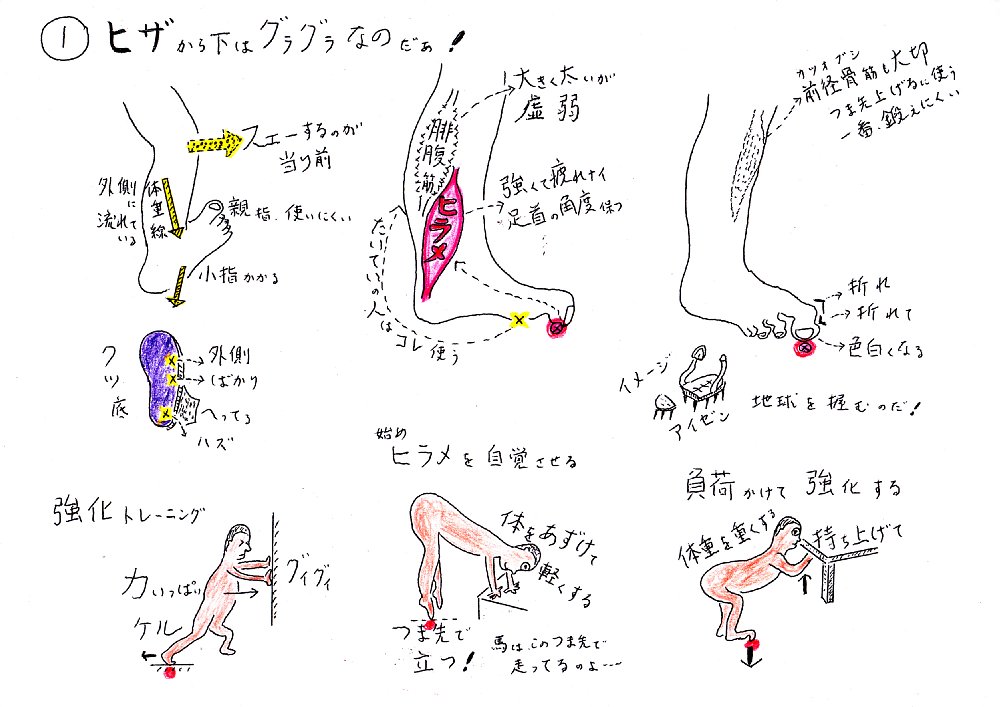 ① ヒザから下はグラグラなのだぁ!
スエーするのが
当り前
外側に
流れている
体重線
親指、使いにくい
小指かかる
クツ底
外側
ばかり
へってる
ハズ
大きく太いが
虚弱
腓腹筋
ヒラメ
強くて疲れナイ
足首の角度保つ
たいていの人は
コレ使う
カツオブシ
前径骨筋も大切
つま先上げるに使う
一番、鍛えにくい
折れ
折れて
色白くなる
イメージ
アイゼン
地球を握むのだ!
強化トレーニング
力いっぱい
ケル
グイグイ
始め
ヒラメを自覚させる
体をあずけて
軽くする
つま先で
立つ!
馬はこのつま先で
走ってるのよ~~
負荷かけて強化する
体重を重くする
持ち上げて